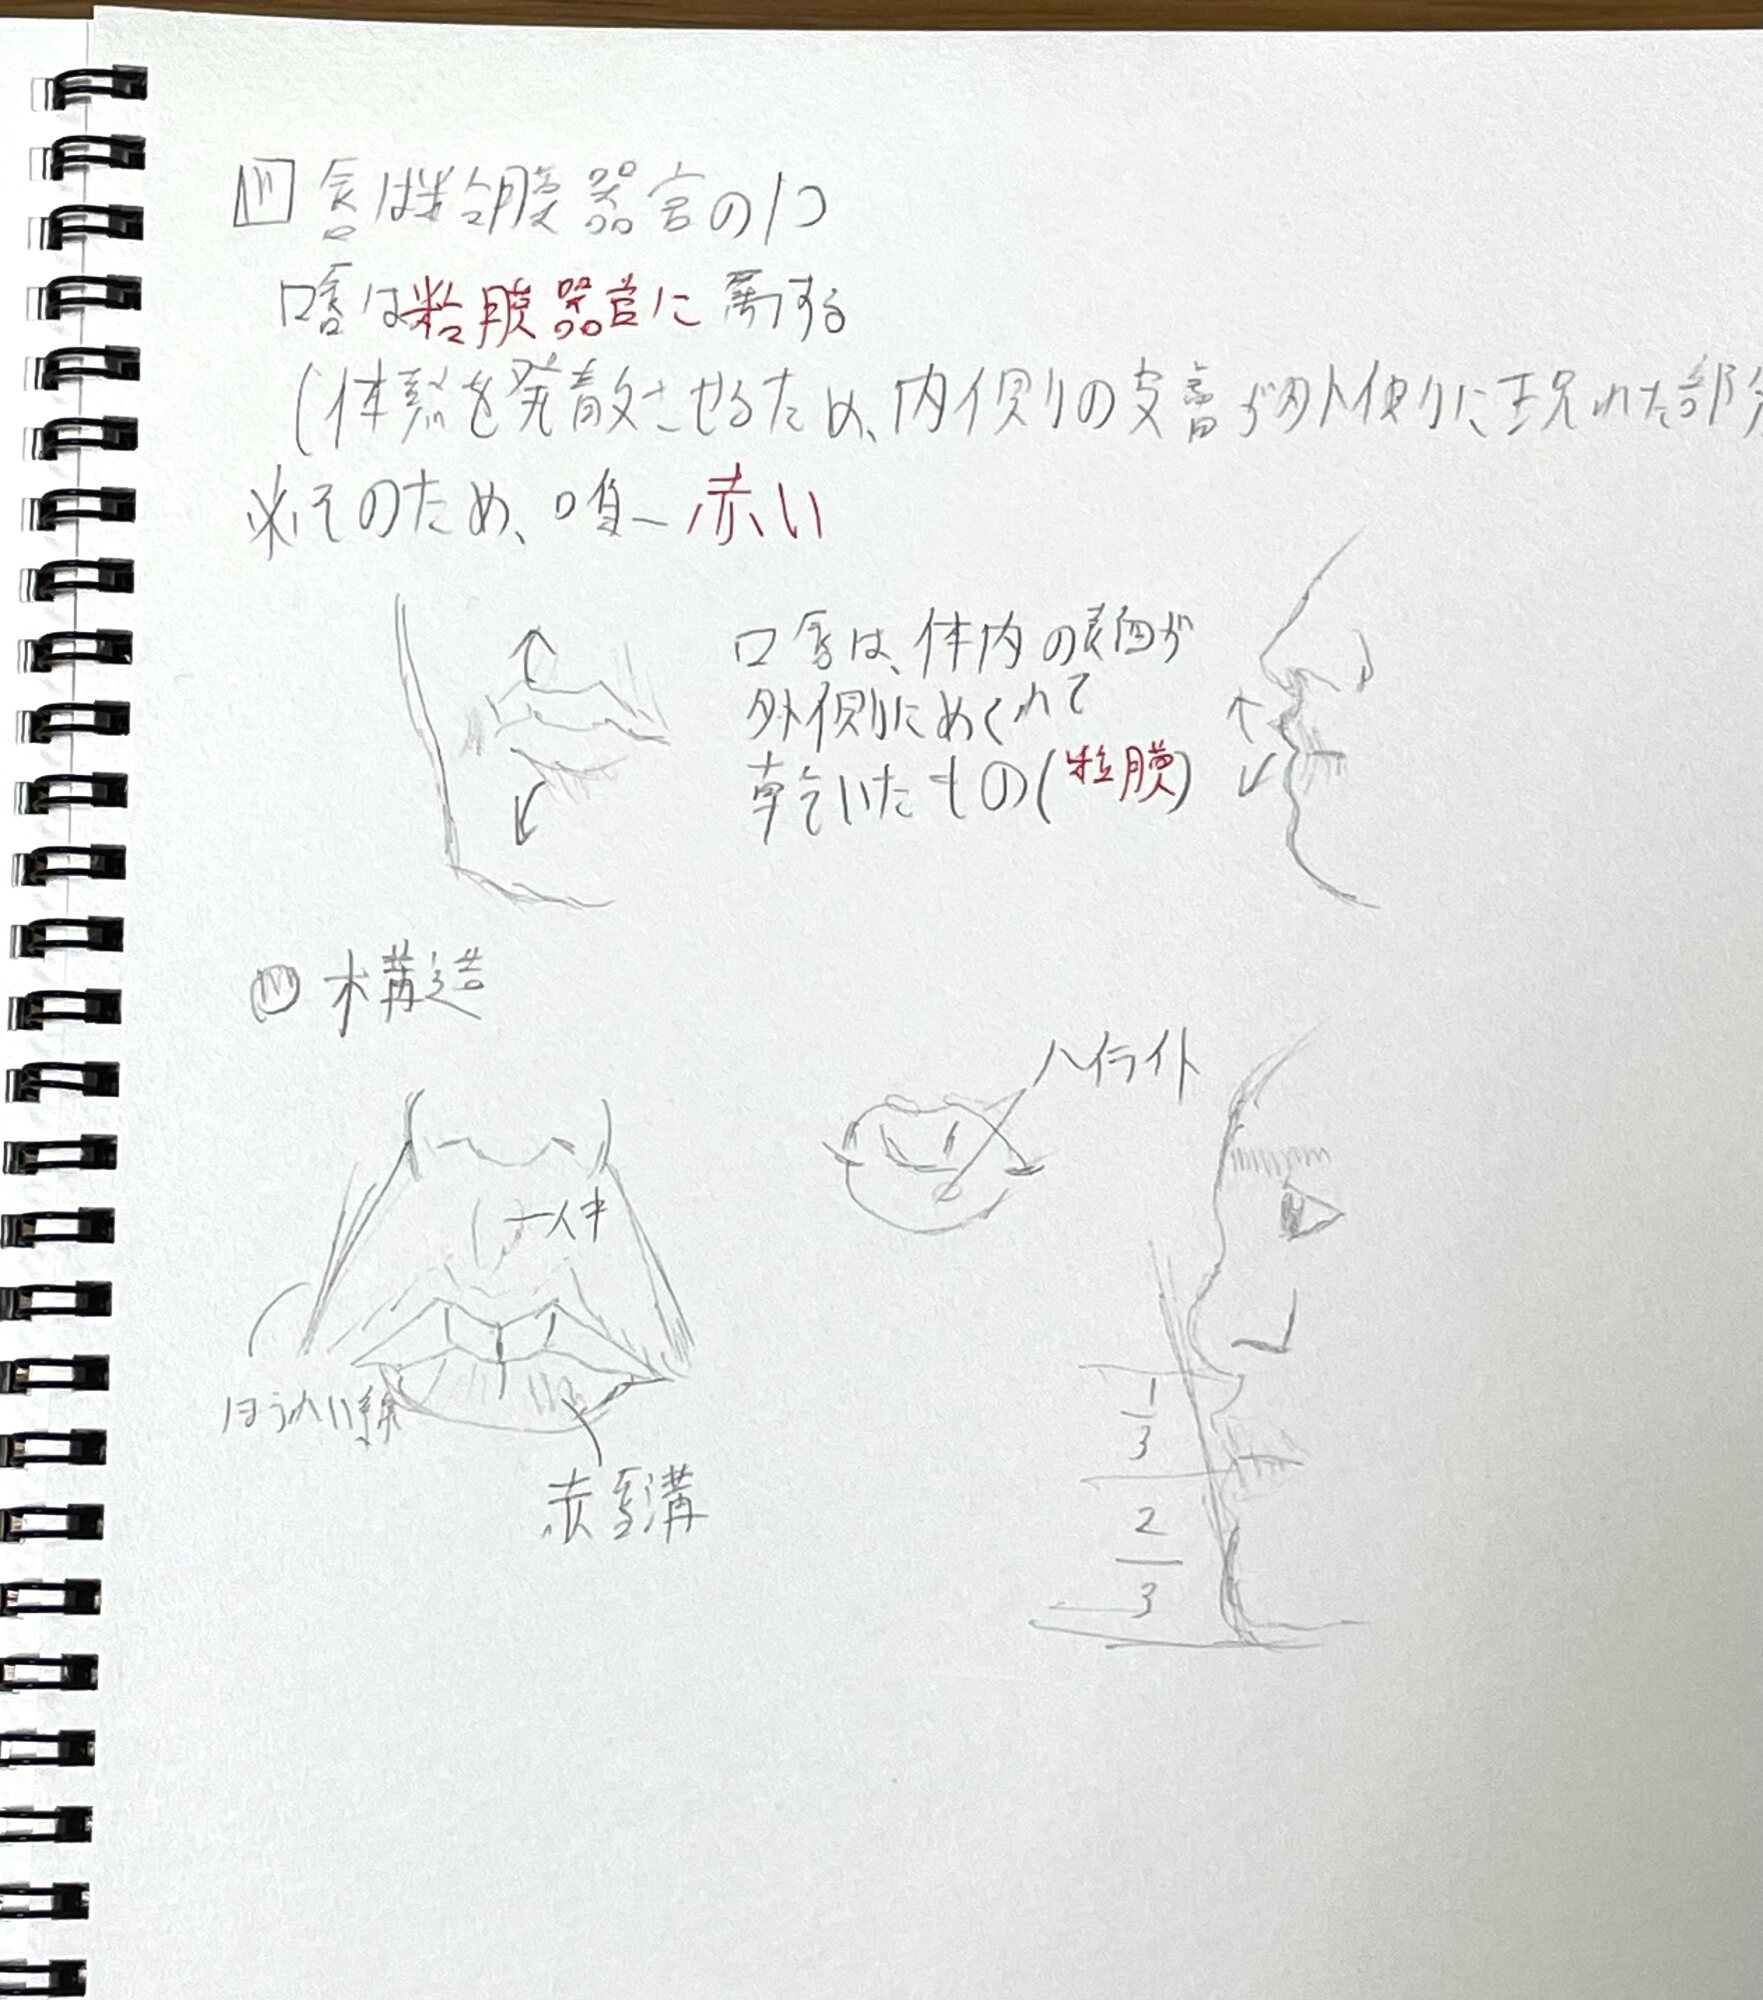 唇は粘膜器官の1つ
口唇は粘膜器官に属する
(体熱を発散させるため、内側の皮膚が外側に現れた部分
※そのため、唯一赤い
口唇は、体内の表面が
外側にめくれて
乾いたもの(粘膜)
構造
ハイライト
人中
ほうれい線
赤唇溝
1/3
2/3